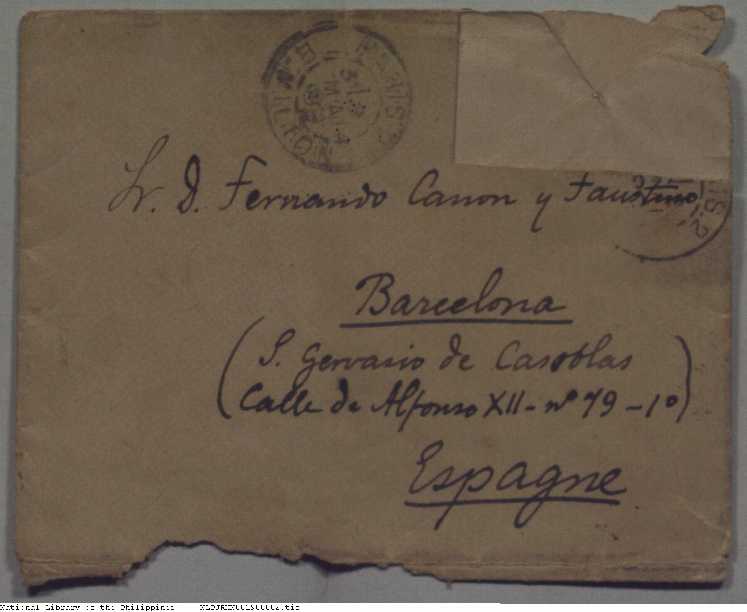 PARIS
Sr. D. Fernando Canon y Faustino
Barcelona
(S. Gervasio de Casoblas
Calle de Alfonso XII - nº 79 - 1º)
Espagne
National Library of the Philippines